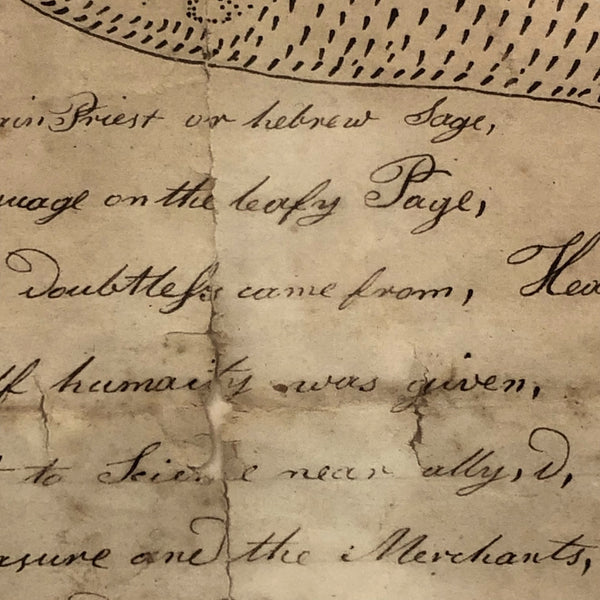 ain Priest or hebrew Sage,
uage on the leafy Page,
Doubtless came from, Hea
lf humaity was given,
to Scie e near ally,D,
asure and the Merchants,